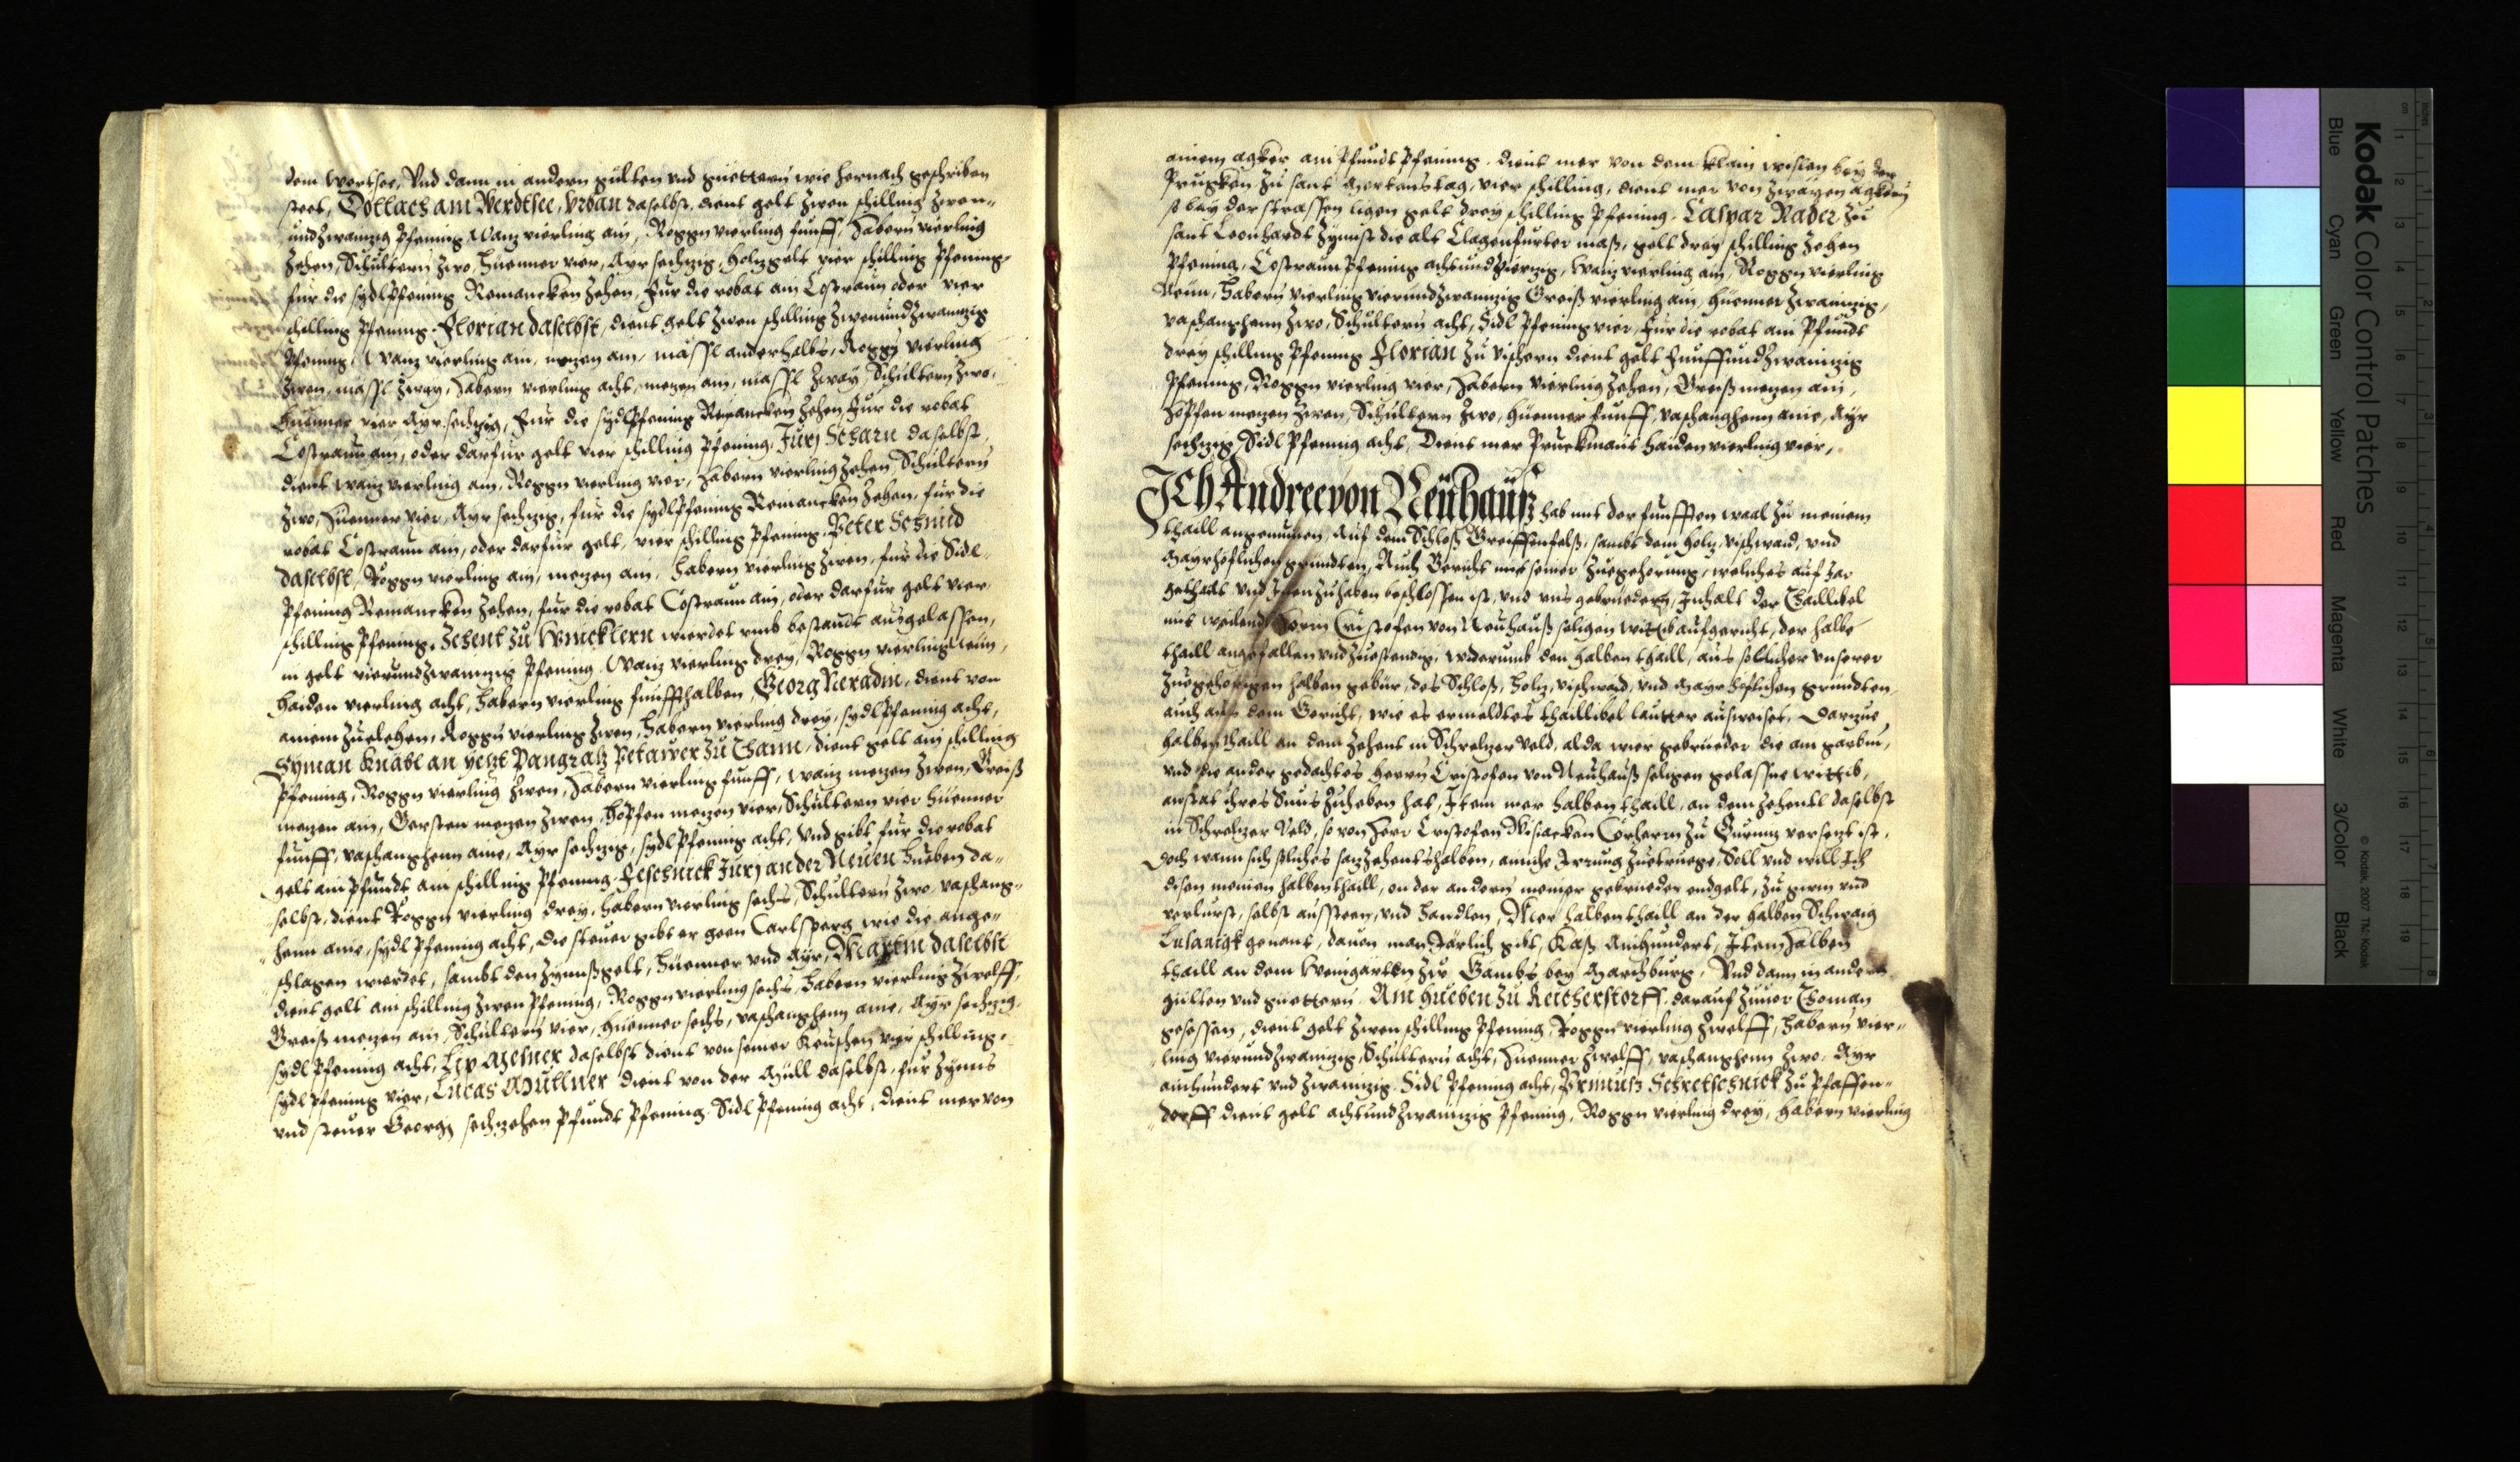 dem Wertsee, Vnd dann in andern gulten vnd guettern wie hernach geschriben
steet, Dollach am Werdtsee, Vrban daselbst, dient gelt zwen schilling zwen-
undzwainzig Pfening Waiz vierling ain, Roggn vierling funff, Habern vierling
zehen, Schultern zwo, Huenner vier, Ayr sechzig, Holzgelt vier schilling Pfening,
fur die sydlPfening Remancken zehen, Fur die robat ain Costraun oder vier
schilling Pfening. Florian daselbst, dient gelt zwen schilling zwenundzwainzig
Pfening, Waiz vierling ain, mezen ain, massl anderhalbs, Roggn vierling
zwen, massl zway, Habern vierling acht, mezen ain, massl zway, Schultern zwo,
Huenner vier Ayr sechzig, Fur die sydlPfening Remancken zehen, Fur die robat
Costraun ain, oder darfur gelt vier schilling Pfening. Jurj Scharn daselbst,
dient waiz vierling ain, Roggn vierling vier, Habern vierling zehen, Schultern
zwo, Huenner vier, Ayr sechzig, fur die sydlPfening Remancken zehen, fur die
robat Costraun ain, oder darfur gelt, vier schilling Pfening. Peter Schmid
daselbst, Roggn vierling ain, mezen ain, Habern vierling zwen, fur die Sidl-
Pfening Remancken zehen, fur die robat Costraun ain, oder darfur gelt vier
schilling Pfening. Zehent zu Winicklern wierdet vmb bestandt ausgelassen,
in gelt vierundzwainzig Pfening, Waiz vierling drey, Roggn vierling Neun,
Haiden vierling acht, Habern vierling funffthalben, Georg Neradin, dient von
ainem zuelehen, Roggn vierling zwen, Habern vierling drey, sydlPfening acht,
Syman Knäbl an yetzt Pangratz Petarrer zu Thann, dient gelt ain schilling
Pfening, Roggn vierling zwen, Habern vierling funff, waiz mezen zwen, Greiß
mezen ain, Gersten mezen zwen, Hopffen mezen vier, Schultern vier Huenner
funff, vaschanghenn aine, Ayr sechzig, sydlPfening acht, Vnd gibt fur die robat
gelt ain Pfundt ain schilling Pfening. Feschnick Jurj an der Neuen Hueben da-
selbst, dient Roggn vierling drey, Habern vierling sechs, Schultern zwo, vaschang-
henn aine, sydl Pfening acht, die steuer gibt er geen Carlsperg wie die ange-
schlagen wierdet, sambt den Zynnßgelt, Huenner vnd Ayr, Martin daselbst
dient gelt ain schilling zwen Pfening, Roggn vierling sechs, Habern vierling zwelff,
Greiß mezen ain, Schultern vier, Huenner sechs, vaschanghenn aine, Ayr sechzig,
sydlPfening acht, Lip Mesner daselbst dient von seiner Keuschen vier schilling,
sydlPfening vier, Lucas Müllner dient von der Müll daselbst, fur Zynns
vnd steuer Georgj sechzehen Pfundt Pfening. Sidl Pfening acht, dient mer von
ainem agker ain Pfundt Pfening. dient mer von dem klain wislen bey der
Prugken zu sant Mertenstag, vier schilling, dient mer von zwayen agkern
so bey der strassen ligen gelt drey schilling Pfening. Caspar Rader zu
sant Leonhardt zynnst die alt Clagenfurter maß, gelt drey schilling zehen
Pfening, CostraunPfening achtundvierzig, Waiz vierling ain, Roggn vierling
Neun, Habern vierling vierundzwainzig Greiß vierling ain, Huenner zwainzig,
vaschanghenn zwo, Schultern acht, Sidl Pfening vier, Fur die robat ain Pfundt
drey schilling Pfening Florian zu Vischern dient gelt funffundzwainzig
Pfening, Roggn vierling vier, Habern vierling zehen, Greiß mezen ain,
Hopffen mezen zwen, Schultern zwo, Huenner funff, vaschanghenn aine, Ayr
sechzig, Sidl Pfening acht, Dient mer Pruckmaut Haiden vierling vier,
Ich Andree von Neühauß hab mit der funfften waal zu meinem
thaill angenumen, Auf dem Schloß Greiffenfelß, sambt dem Holz, vischwaid, vnd
Mayrhöflichen grundten, Auch Gericht mit seiner zuegehorung, welliches auf Jar
gethailt vnd zuhaben beschlossen ist, vnd vns gebruedern, Inhalt der Thaillibel
mit weilend Herrn Cristofen von Neuhauß seligen Wittib aufgericht, der halbe
thaill angefallen vnd zuestendig, widerumb den halben thaill, aus söllicher vnserer
zuegehorigen halben gebür, des Schloß, Holz, vischwaid, vnd Mayrhöflichen gründten,
auch aus dem Gericht, wie es ermeldtes thaillibel lautter ausweiset, Darzue
halben thaill an dem Zehent in Schrelzer Veld, alda wier gebrueder die ain garbm,
vnd die ander gedachtes Herrn Cristofen von Neuhauß seligen gelassne Wittib,
anstat ihres Suns zuheben hat, Item mer halben thaill, an dem Zehentl daselbst
in Schrelzer Veld, so von Herr Cristofen Korherrn zu Gurnnz versezt ist,
doch wann sich söliches saz Zehents halben, ainiche Irrung zuetruege, Soll vnd will Ich
disen meinen halben thaill, on der andern meiner gebrueder endgelt, zu gwin vnd
verlurst, selbst aussteen, vnd handlen, Mer halben thaill an der halben Schwaig
Lusanigk genant, dauon man Järlich gibt, Käß ainhundert, Item halben
thaill an dem Weingarten zu Gambs bey Marchburg, Vnd dann in andern
gülten vnd guettern. Ain Hueben zu Reicherstorff, darauf zuuor Thoman
gesessen, dient gelt zwen schilling Pfening, Roggn vierling zwelff, Habern vier-
ling vierundzwainzig, Schultern acht, Huenner zwelff, vaschanghenn zwo, Ayr
ainhundert vnd zwainzig. Sidl Pfening acht, Primuß Schretschnick zu Pfaffen-
dorff dient gelt achtundzwainzig Pfening, Roggn vierling drey, Habern vierling
Kodak Color Control Patches
Blue Cyan Green Yellow Red Magenta White 3/Color Black
© Kodak, 2007 TM: Kodak